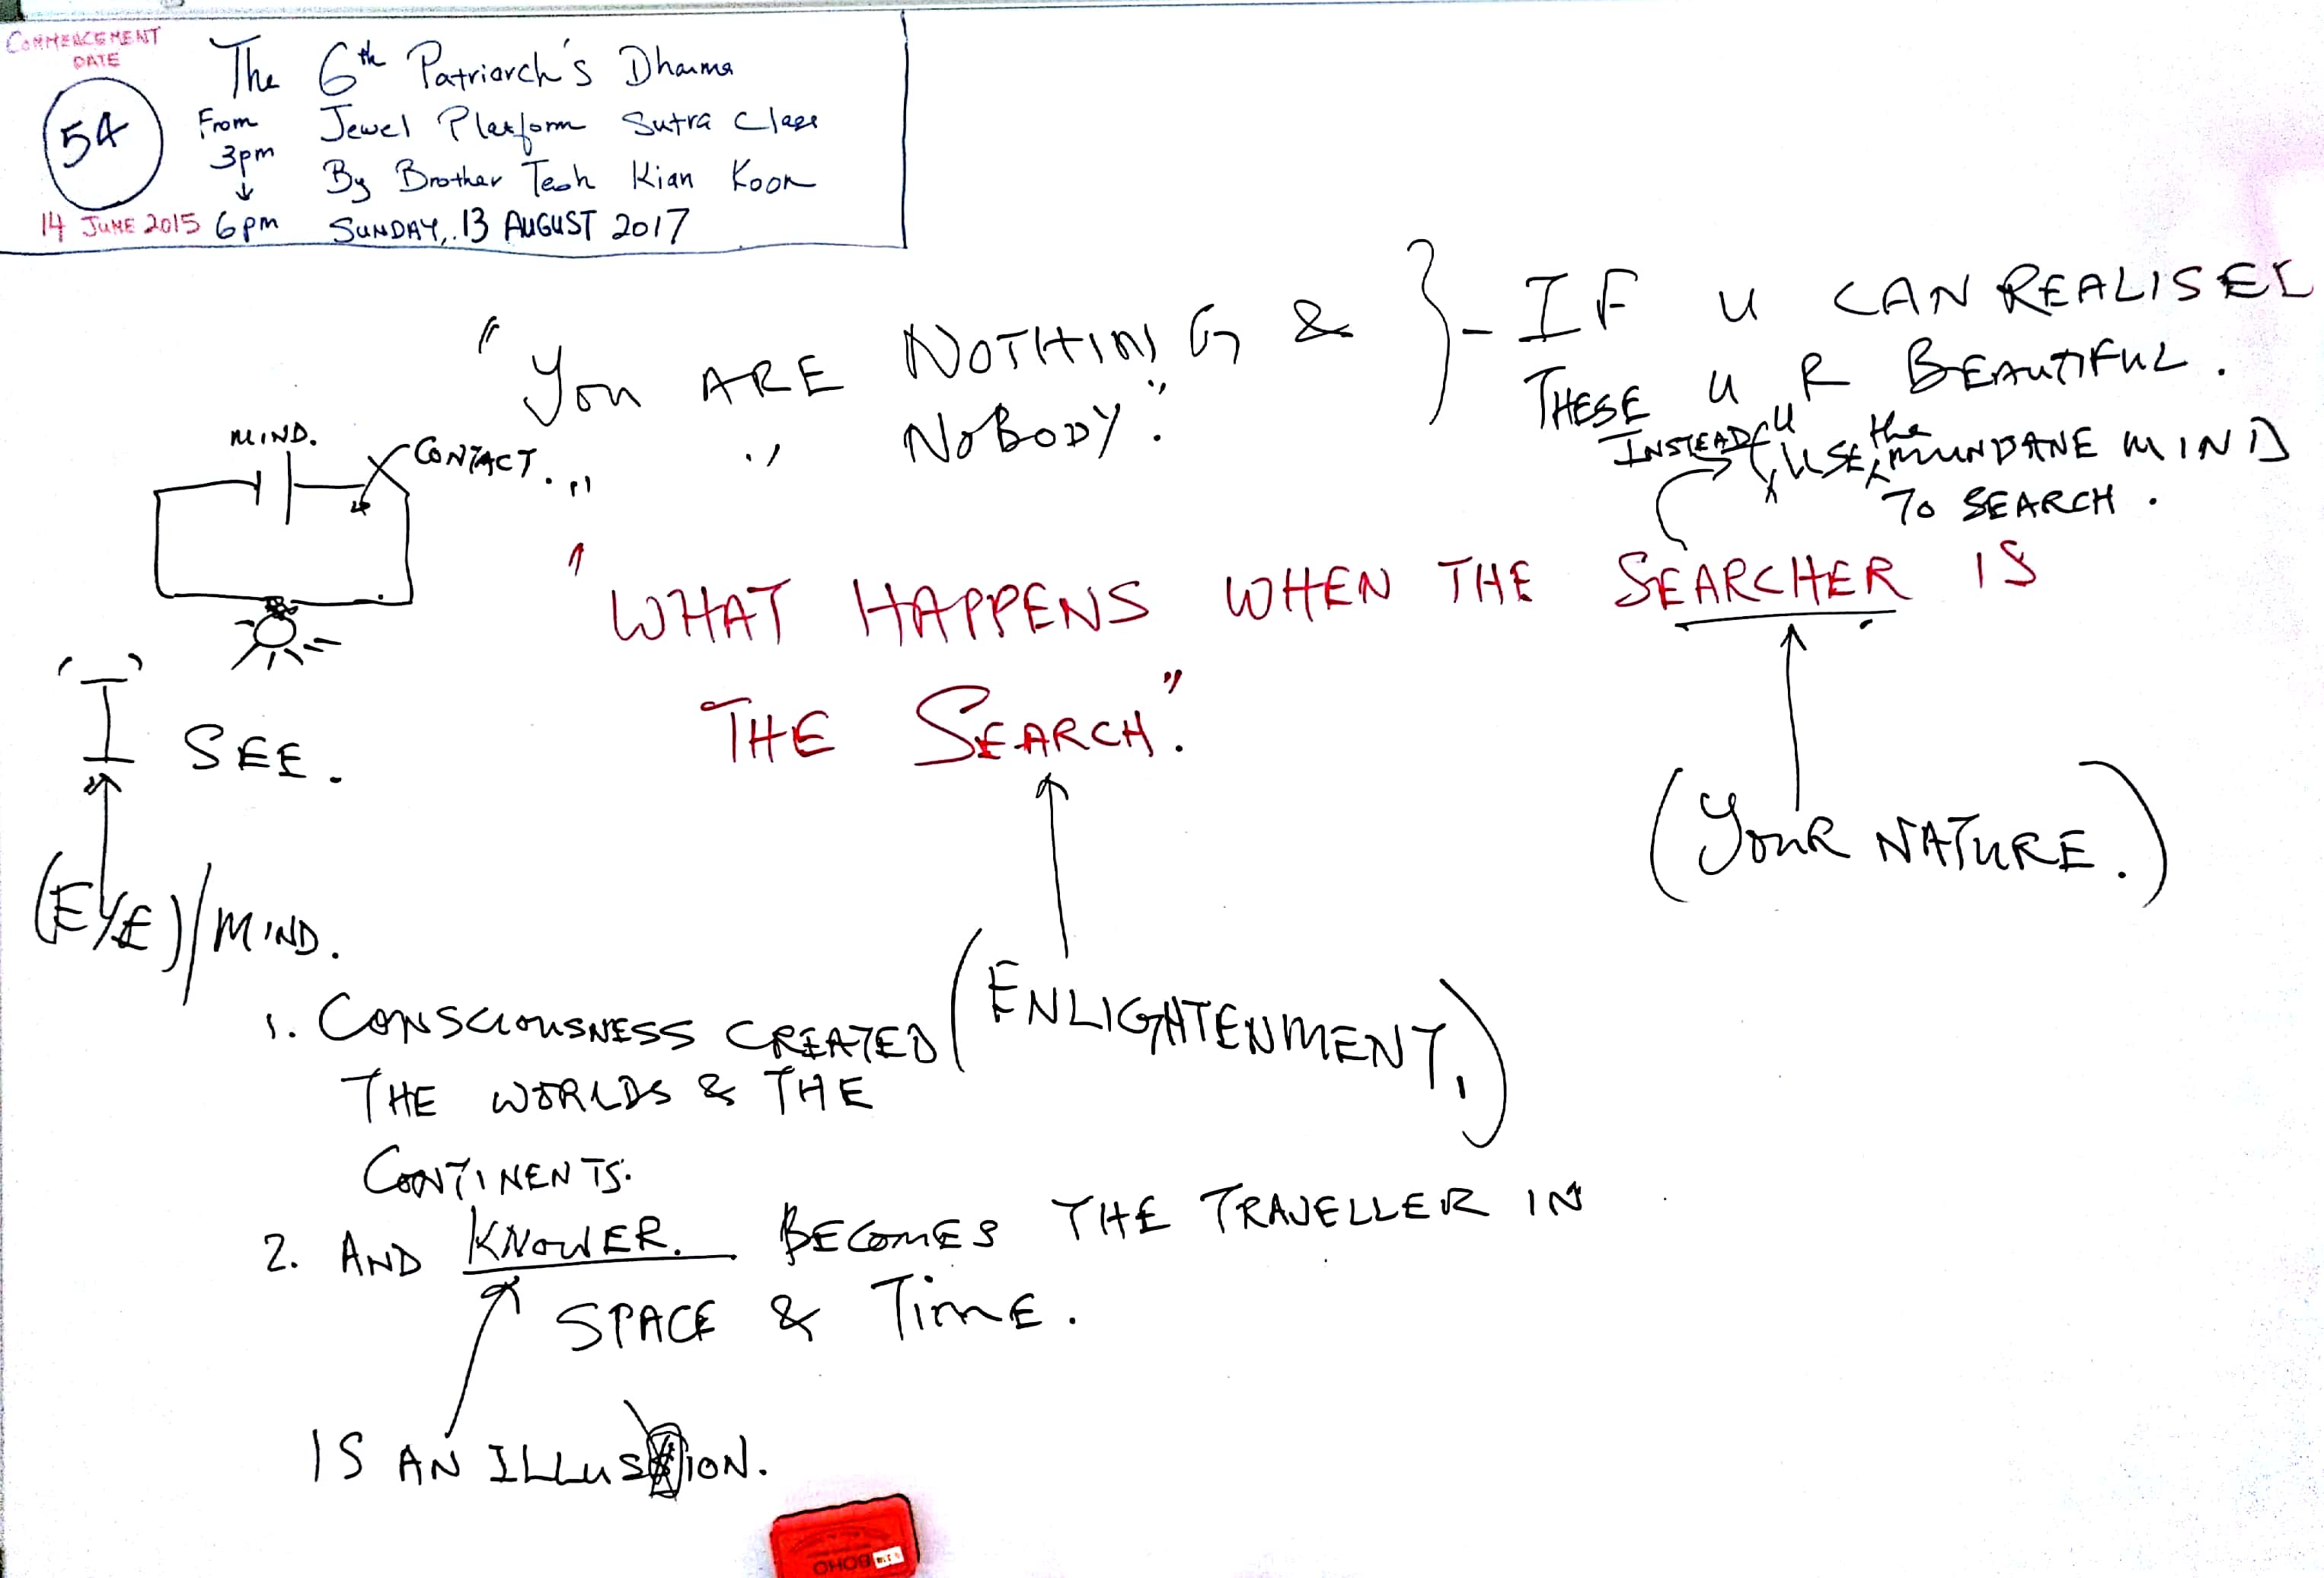 COMMENCEMENT
DATE
54
14 JUNE 2015
From
3pm
↓
6pm
The 6th Patriarch's Dharma
Jewel Platform Sutra Class
By Brother Teoh Kian Koon
SUNDAY, 13 AUGUST 2017
"YOU ARE NOTHING &
" " NOBODY."
} - IF U CAN REALISE
THESE U R BEAUTIFUL.
INSTEAD U USE the MUNDANE MIND
TO SEARCH.
MIND.
CONTACT.
"WHAT HAPPENS WHEN THE SEARCHER IS
THE SEARCH."
'I' SEE.
(EYE)/MIND.
(YOUR NATURE.)
(ENLIGHTENMENT.)
1. CONSCIOUSNESS CREATED
THE WORLDS & THE
CONTINENTS.
2. AND KNOWER. BECOMES THE TRAVELLER IN
SPACE & TIME.
IS AN ILLUSION.
BOHO